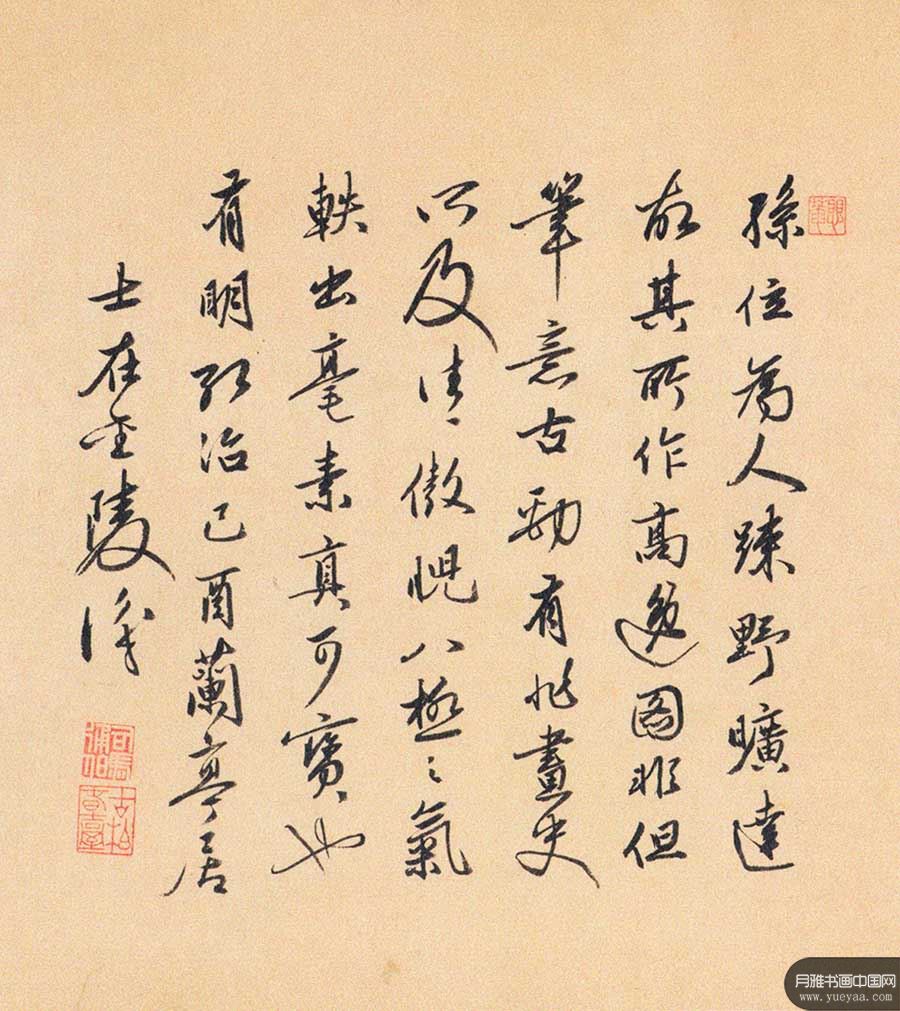 孫位為人踈野曠達
故其所作高逸圖非但
筆意古勁有非畫史
所及清〻傲睨八極之氣
軼出毫素真可寶也
有明弘治己酉蘭亭居
士在金陵識
月雅书画中国网
www.yueyaa.com